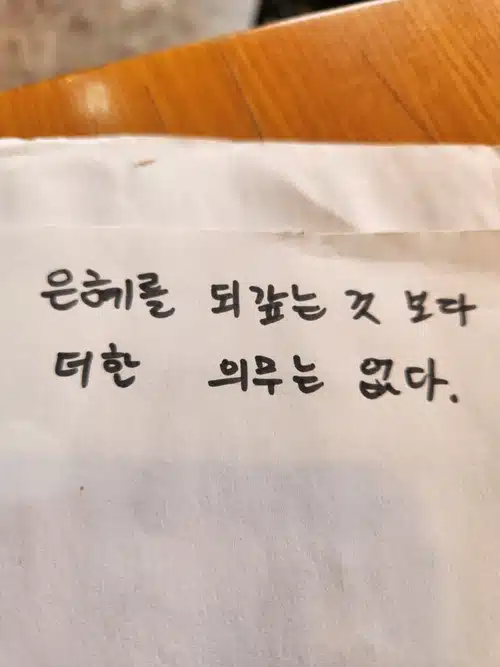 은혜를 되갚는 것 보다
더한 의무는 없다.